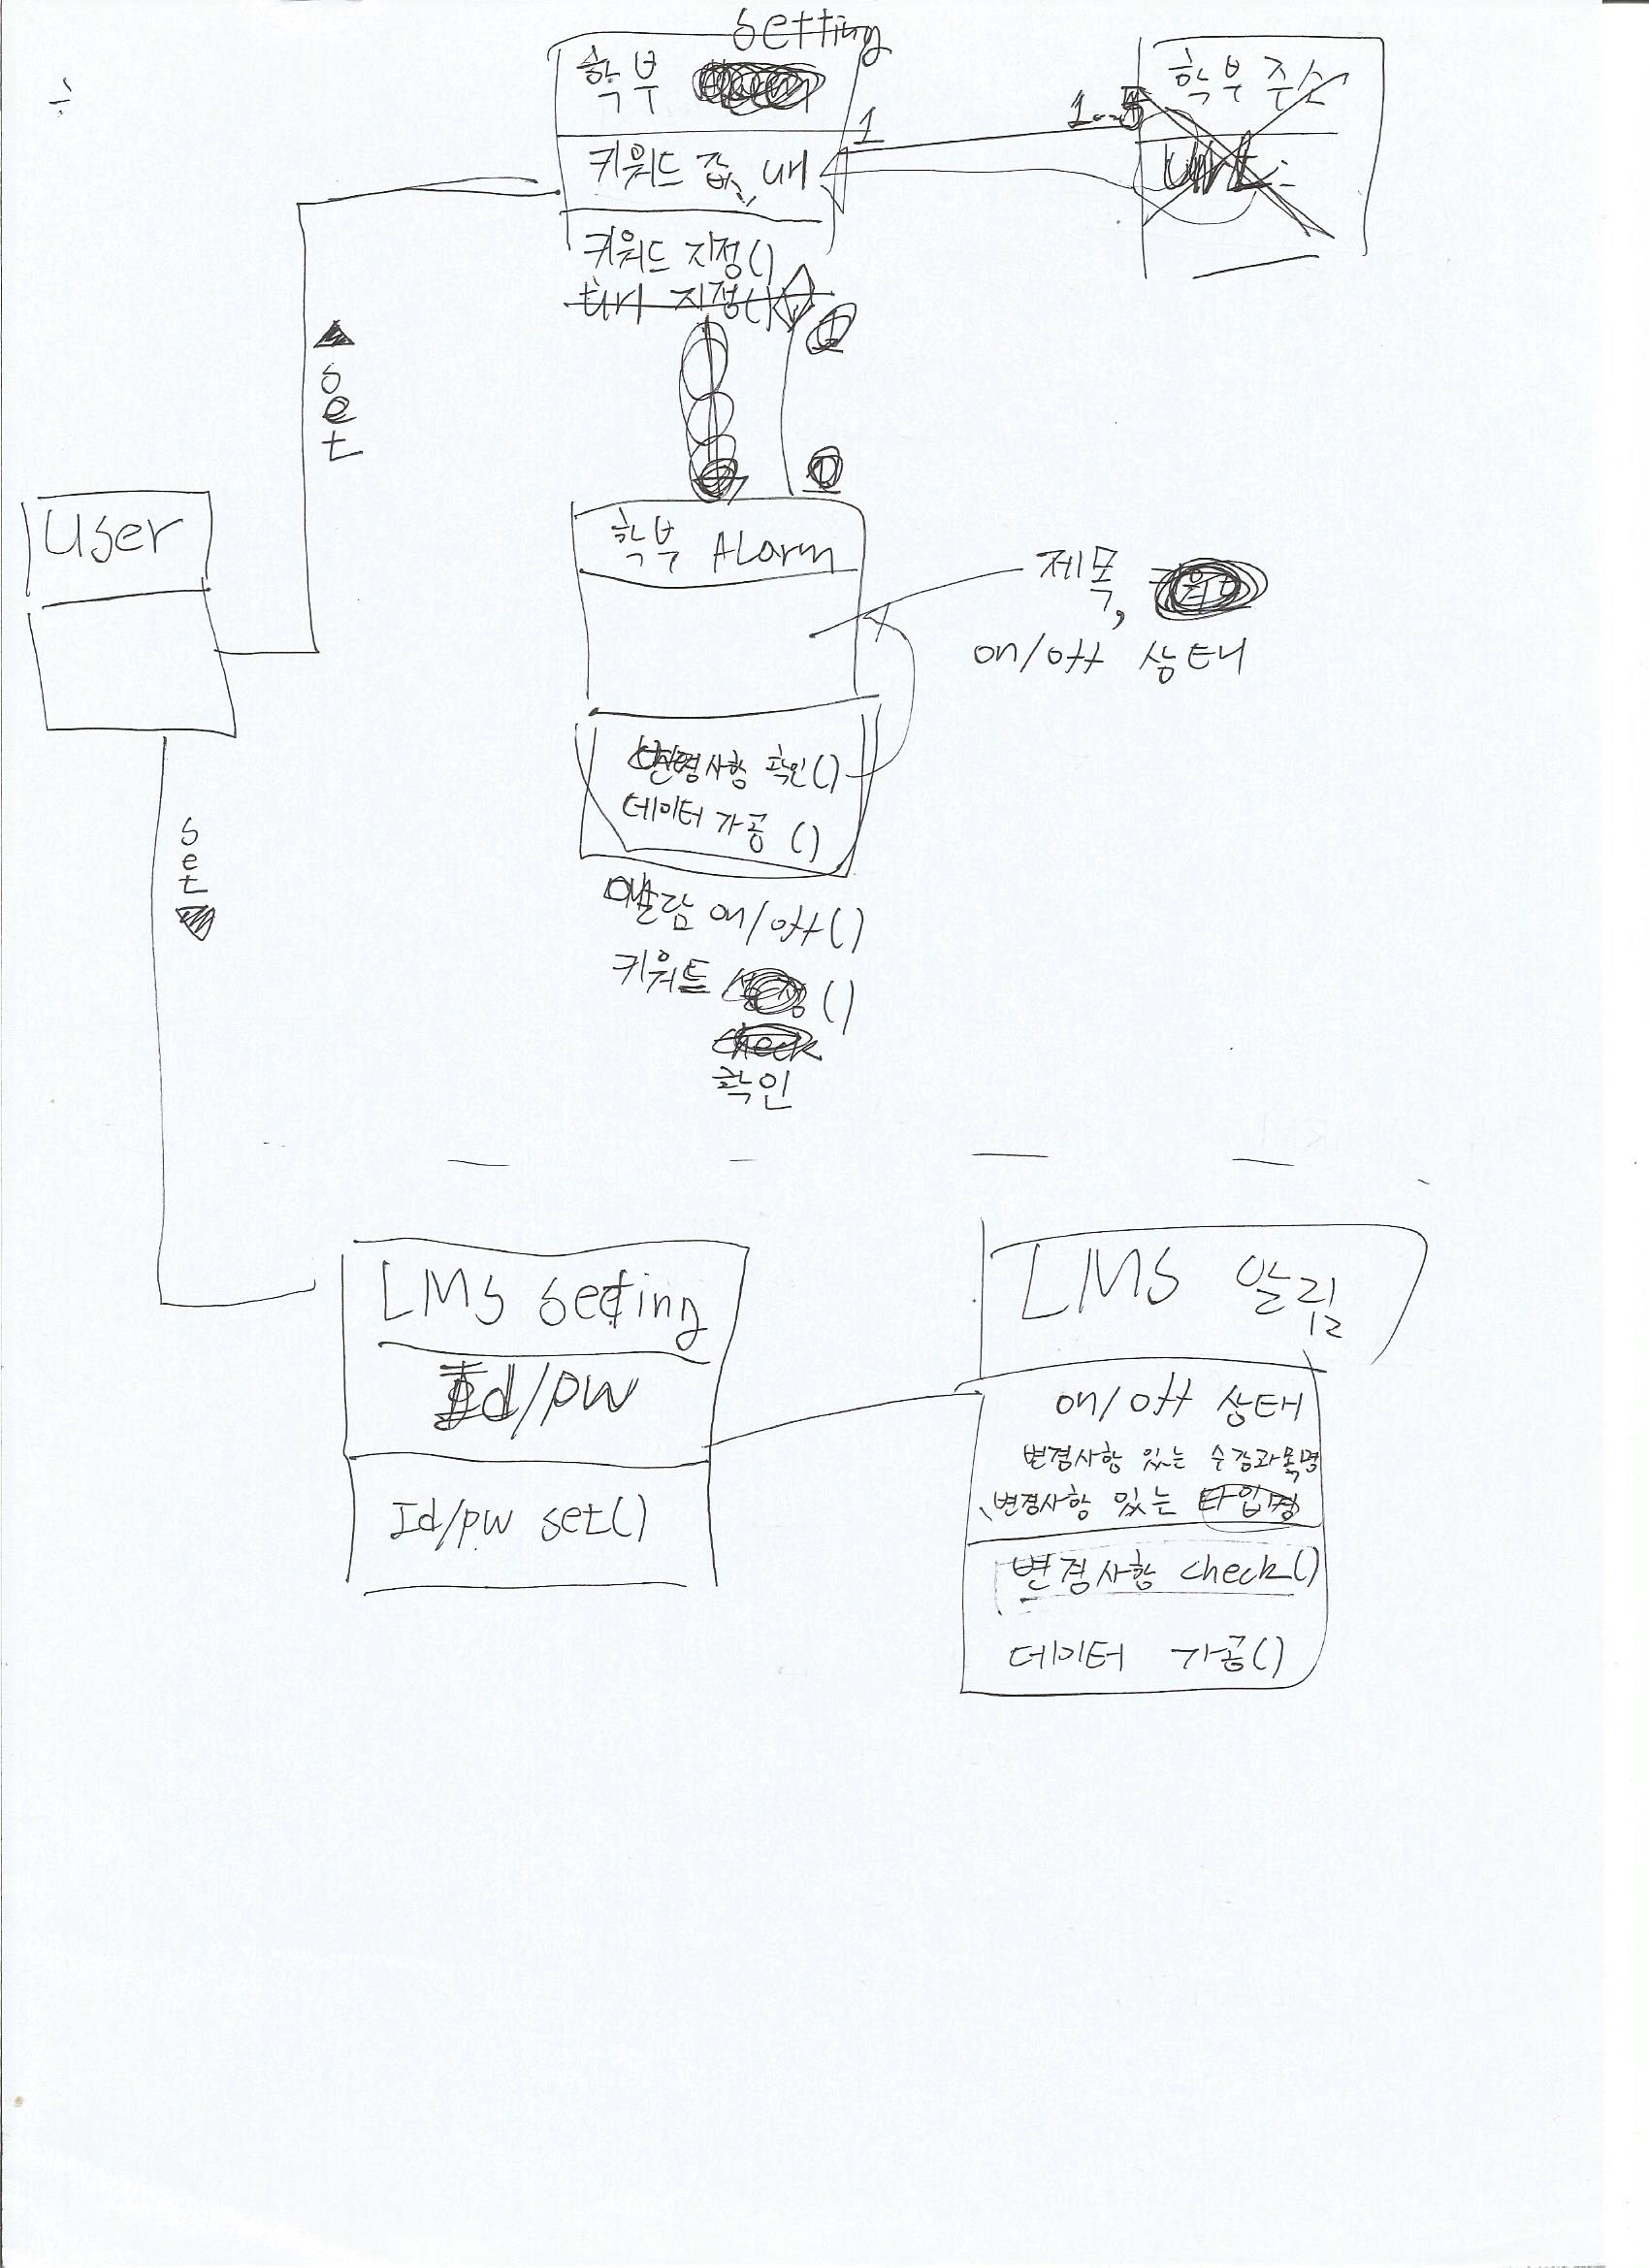 setting
학부
키워드 값, url
키워드 지정()
url 지정()
1
1..5
학부 주소
set
User
학부 Alarm
제목,
on/off 상태
변경사항 확인()
데이터 가공 ()
알람 on/off()
키워드 ()
check
확인
set
LMS setting
Id/pw
Id/pw set()
LMS 알림
on/off 상태
변경사항 있는 수강과목명
변경사항 있는 타입명
변경사항 check()
데이터 가공()